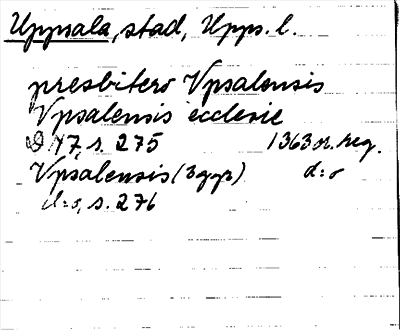 Uppsala, stad, Upps. l.
presbitero Vpsalensis
Vpsalensis ecclesie
D 7, s. 275 1363 or. reg.
Vpsalensis (3 ggr) d:o
d:o, s. 276